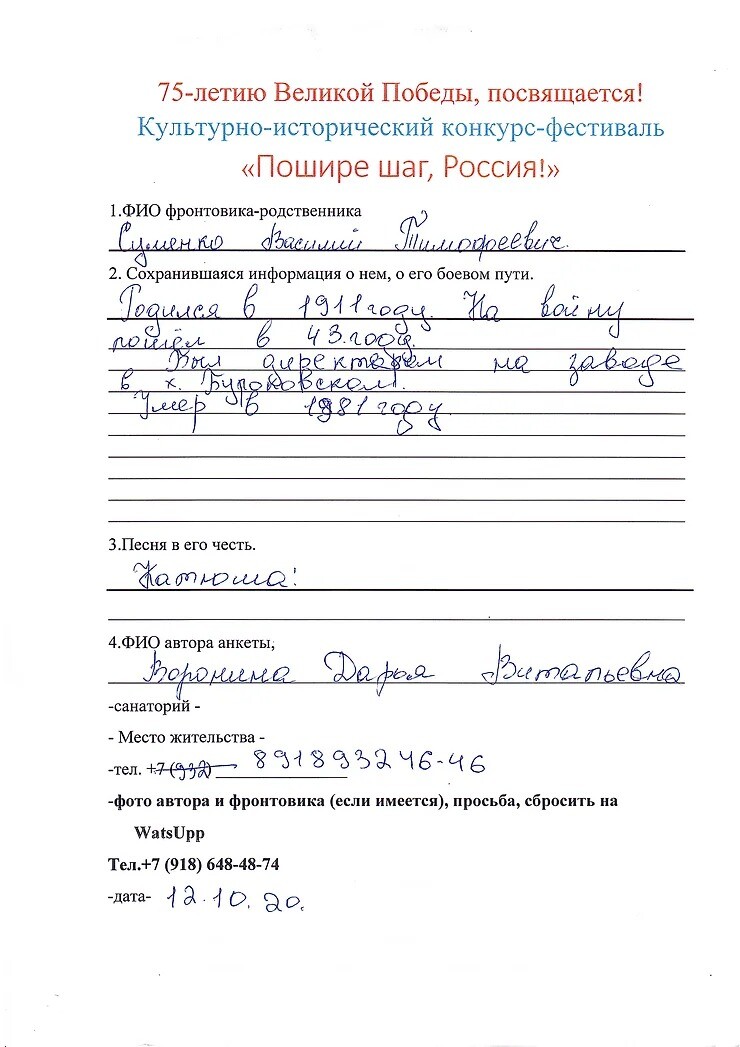 75-летию Великой Победы, посвящается!
Культурно-исторический конкурс-фестиваль
«Пошире шаг, Россия!»
1.ФИО фронтовика-родственника
Суменко Василий Тимофеевич.
2. Сохранившаяся информация о нем, о его боевом пути.
Родился в 1911 году. На войну
пошёл в 43 году.
Был директаром на заводе
в х.
Умер в 1981 году.
3.Песня в его честь.
Катюша!
4.ФИО автора анкеты,
Воронина Дарья Витальевна
-санаторий -
- Место жительства -
-тел. +7 (932) 8918932 46-46
-фото автора и фронтовика (если имеется), просьба, сбросить на
WatsUpp
Тел.+7 (918) 648-48-74
-дата- 12.10.20.